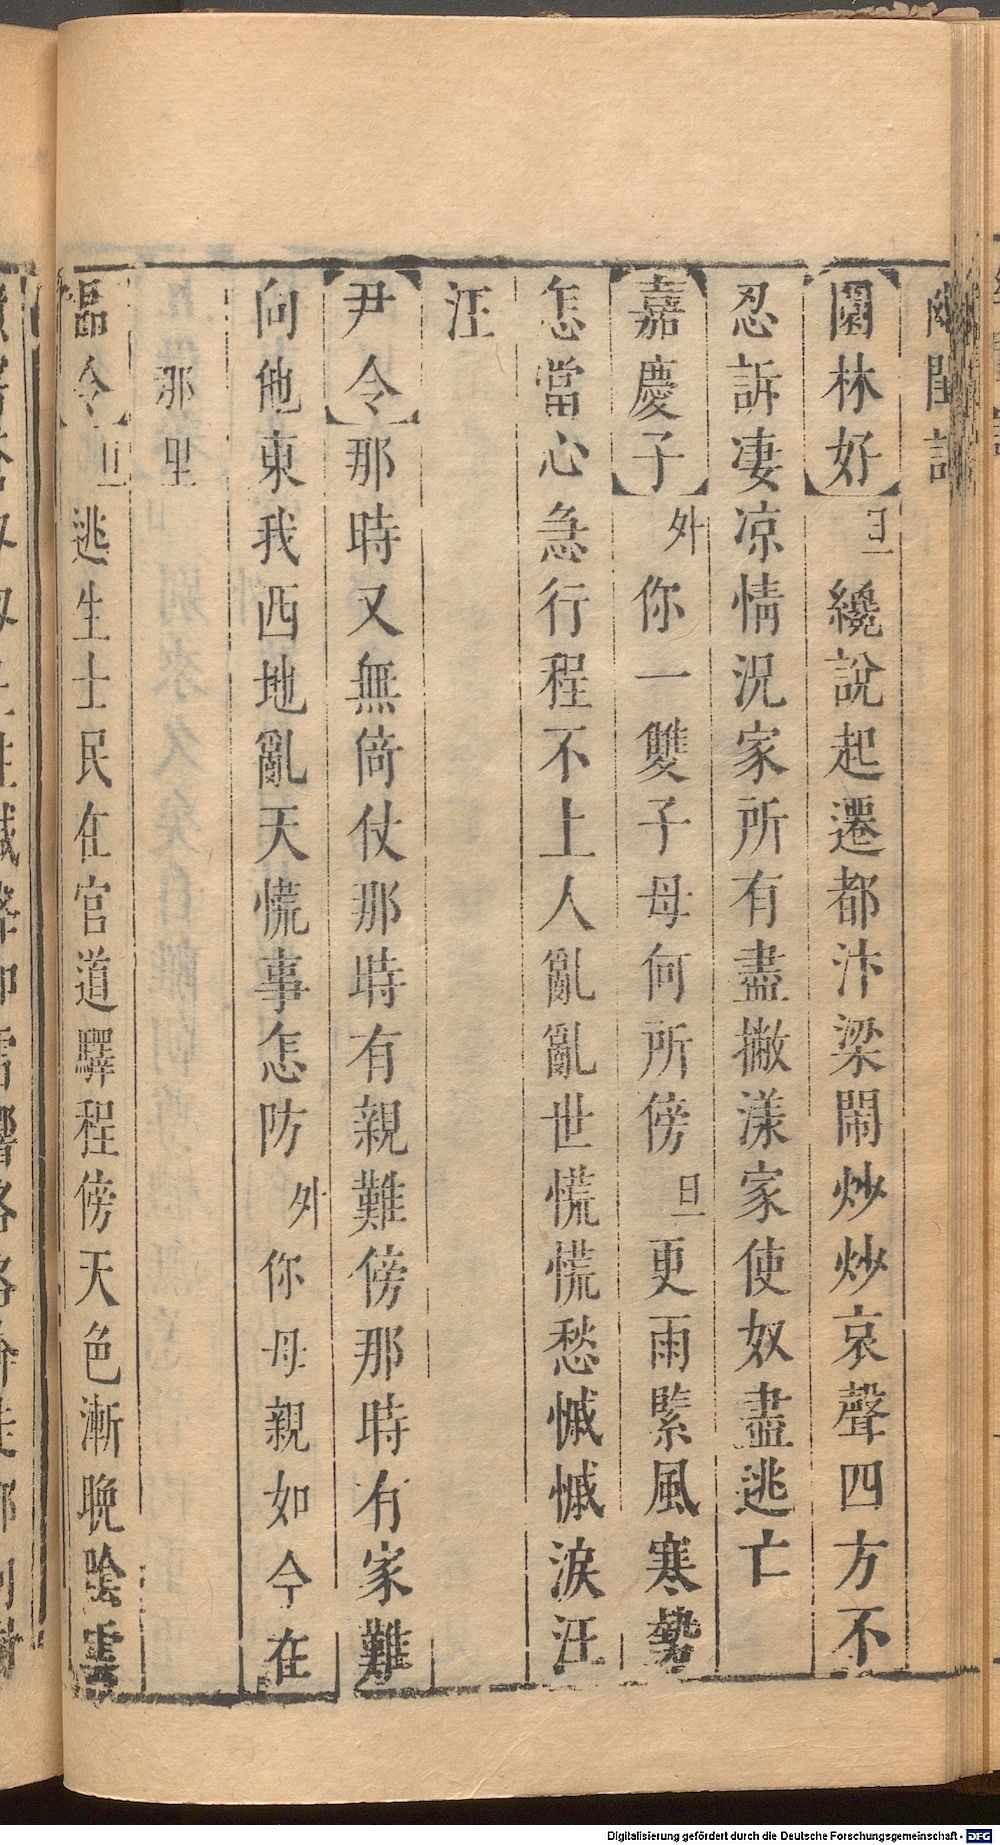 幽閨記
【園林好】旦纔說起遷都汴梁鬧炒炒哀聲四方不
忍訴凄凉情況家所有盡撇漾家使奴盡逃亡
【嘉慶子】外你一雙子母何所傍旦更雨緊風寒勢
怎當心急行程不上人亂亂世慌慌愁慽慽淚汪
汪
【尹令】那時又無倚仗那時有親難傍那時有家難
向他東我西地亂天慌事怎防外你母親如今在
那里
【品令】旦逃生士民在官道驛程傍天色漸晚陰雲
Digitalisierung gefördert durch die Deutsche Forschungsgemeinschaft - DFG